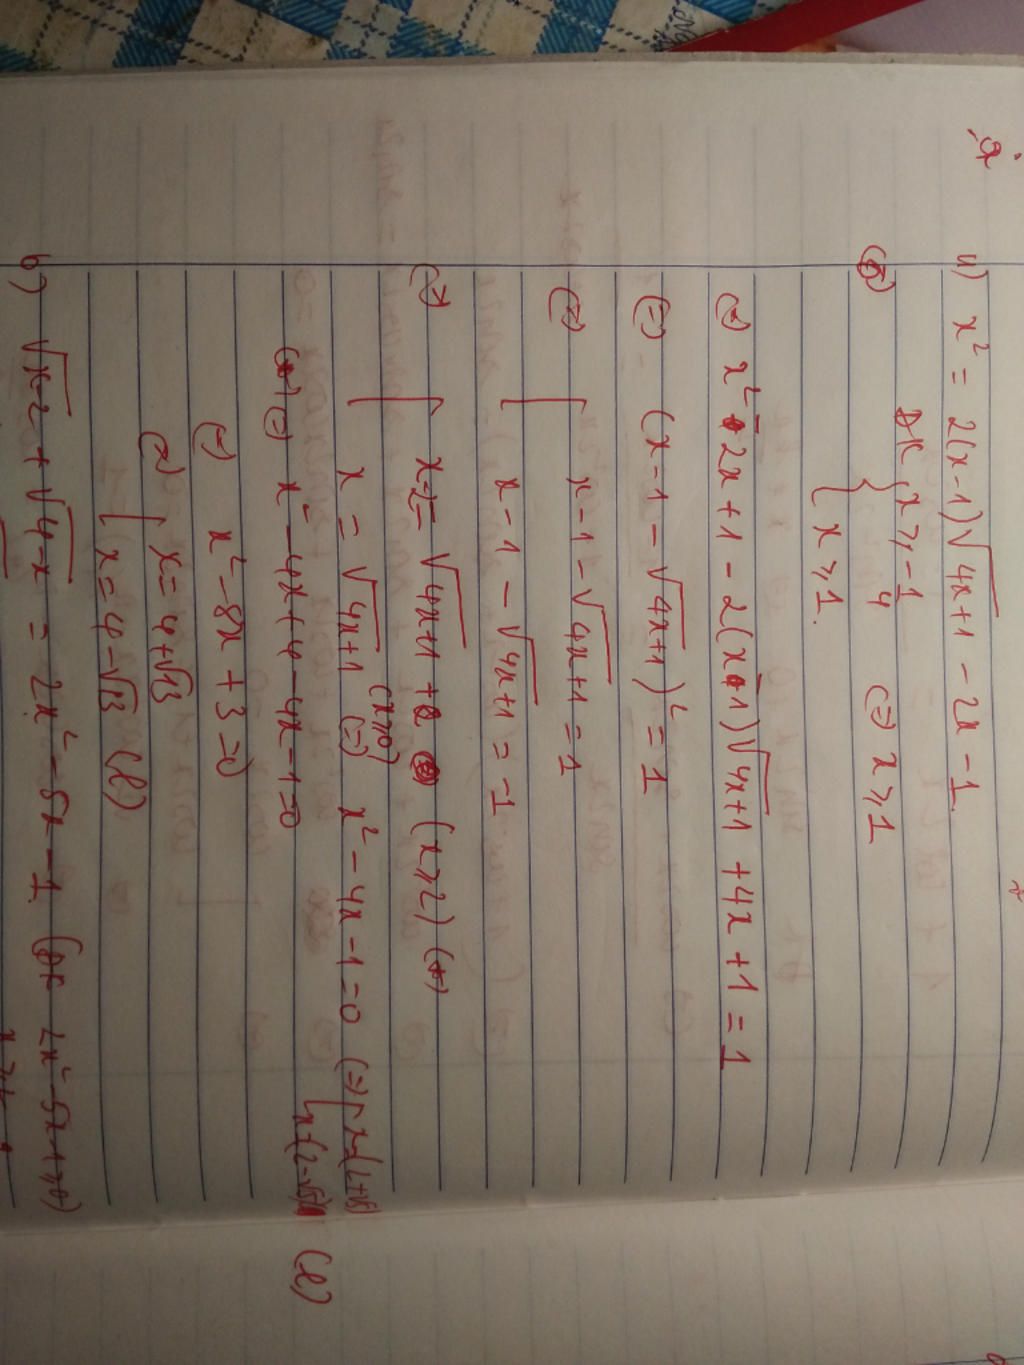 a) x² = 2(x-1)√4x+1 - 2x - 1
ĐK { x ≥ -1/4 (=) x ≥ 1
{ x ≥ 1.
(=) x² - 2x + 1 - 2(x-1)√4x+1 + 4x + 1 = 1
(=) (x - 1 - √4x+1)² = 1
(=) [ x - 1 - √4x+1 = 1
x - 1 - √4x+1 = -1
(=) [ x-2 = √4x+1 (x ≥ 2) (*)
x = √4x+1 (x ≥ 0) (=) x² - 4x - 1 = 0 (=) [ x = 2+√5
x = 2-√5 (l)
(*) (=) x² - 4x + 4 - 4x - 1 = 0
(=) x² - 8x + 3 = 0
(=) [ x = 4 + √13
x = 4 - √13 (l)
b) √x-2 + √4-x = 2x² - 5x - 1 (ĐK 2x² - 5x - 1 ≥ 0)